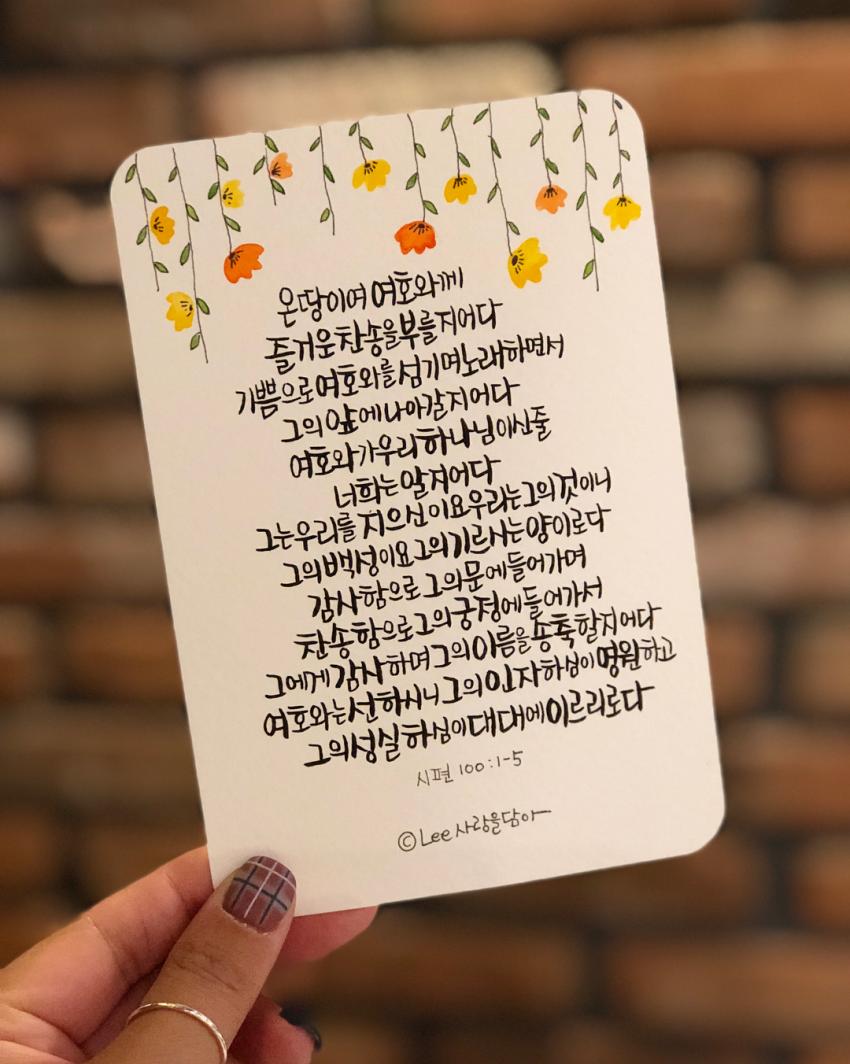 온땅이여 여호와께
즐거운찬송을부를지어다
기쁨으로여호와를섬기며노래하면서
그의앞에나아갈지어다
여호와가우리하나님이신줄
너희는알지어다
그는우리를 지으신이요우리는그의것이니
그의백성이요그의기르시는양이로다
감사함으로 그의문에들어가며
찬송함으로그의궁정에들어가서
그에게 감사하며 그의이름을송축할지어다
여호와는선하시니 그의인자하심이영원하고
그의성실하심이대대에이르리로다
시편 100:1-5
©Lee 사랑을담아